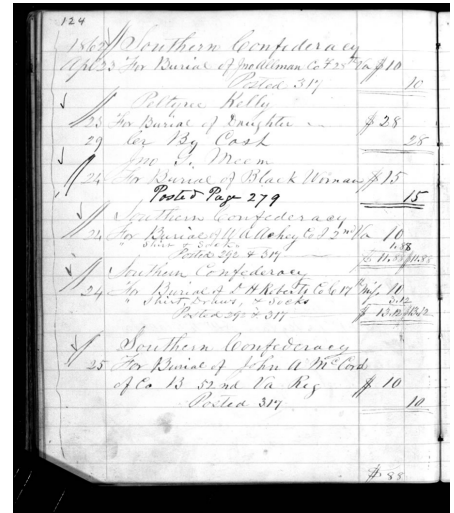 124
1862 Southern Confederacy
Apl 23 For Burial of Co F 28th Va $ 10
Posted 317 10
Kelly
23 For Burial of Daughter $ 28
29 Cr By Cash 28
Jno Meem
24 For Burial of Black Woman $ 15
Posted Page 279 15
Southern Confederacy
24 For Burial of Co I 2nd Va 10
" Shirt & Socks 1.88
Posted 292 & 317 $ 11.88 $11.88
Southern Confederacy
24 For Burial of H Roberts Co C 17th Miss 10
" Shirt, Drawrs, & Socks 3.12
Posted 292 & 317 $ 13.12 $13.12
Southern Confederacy
25 For Burial of John A McCord
of Co B 52nd Va Reg $ 10
Posted 317 10
$ 88